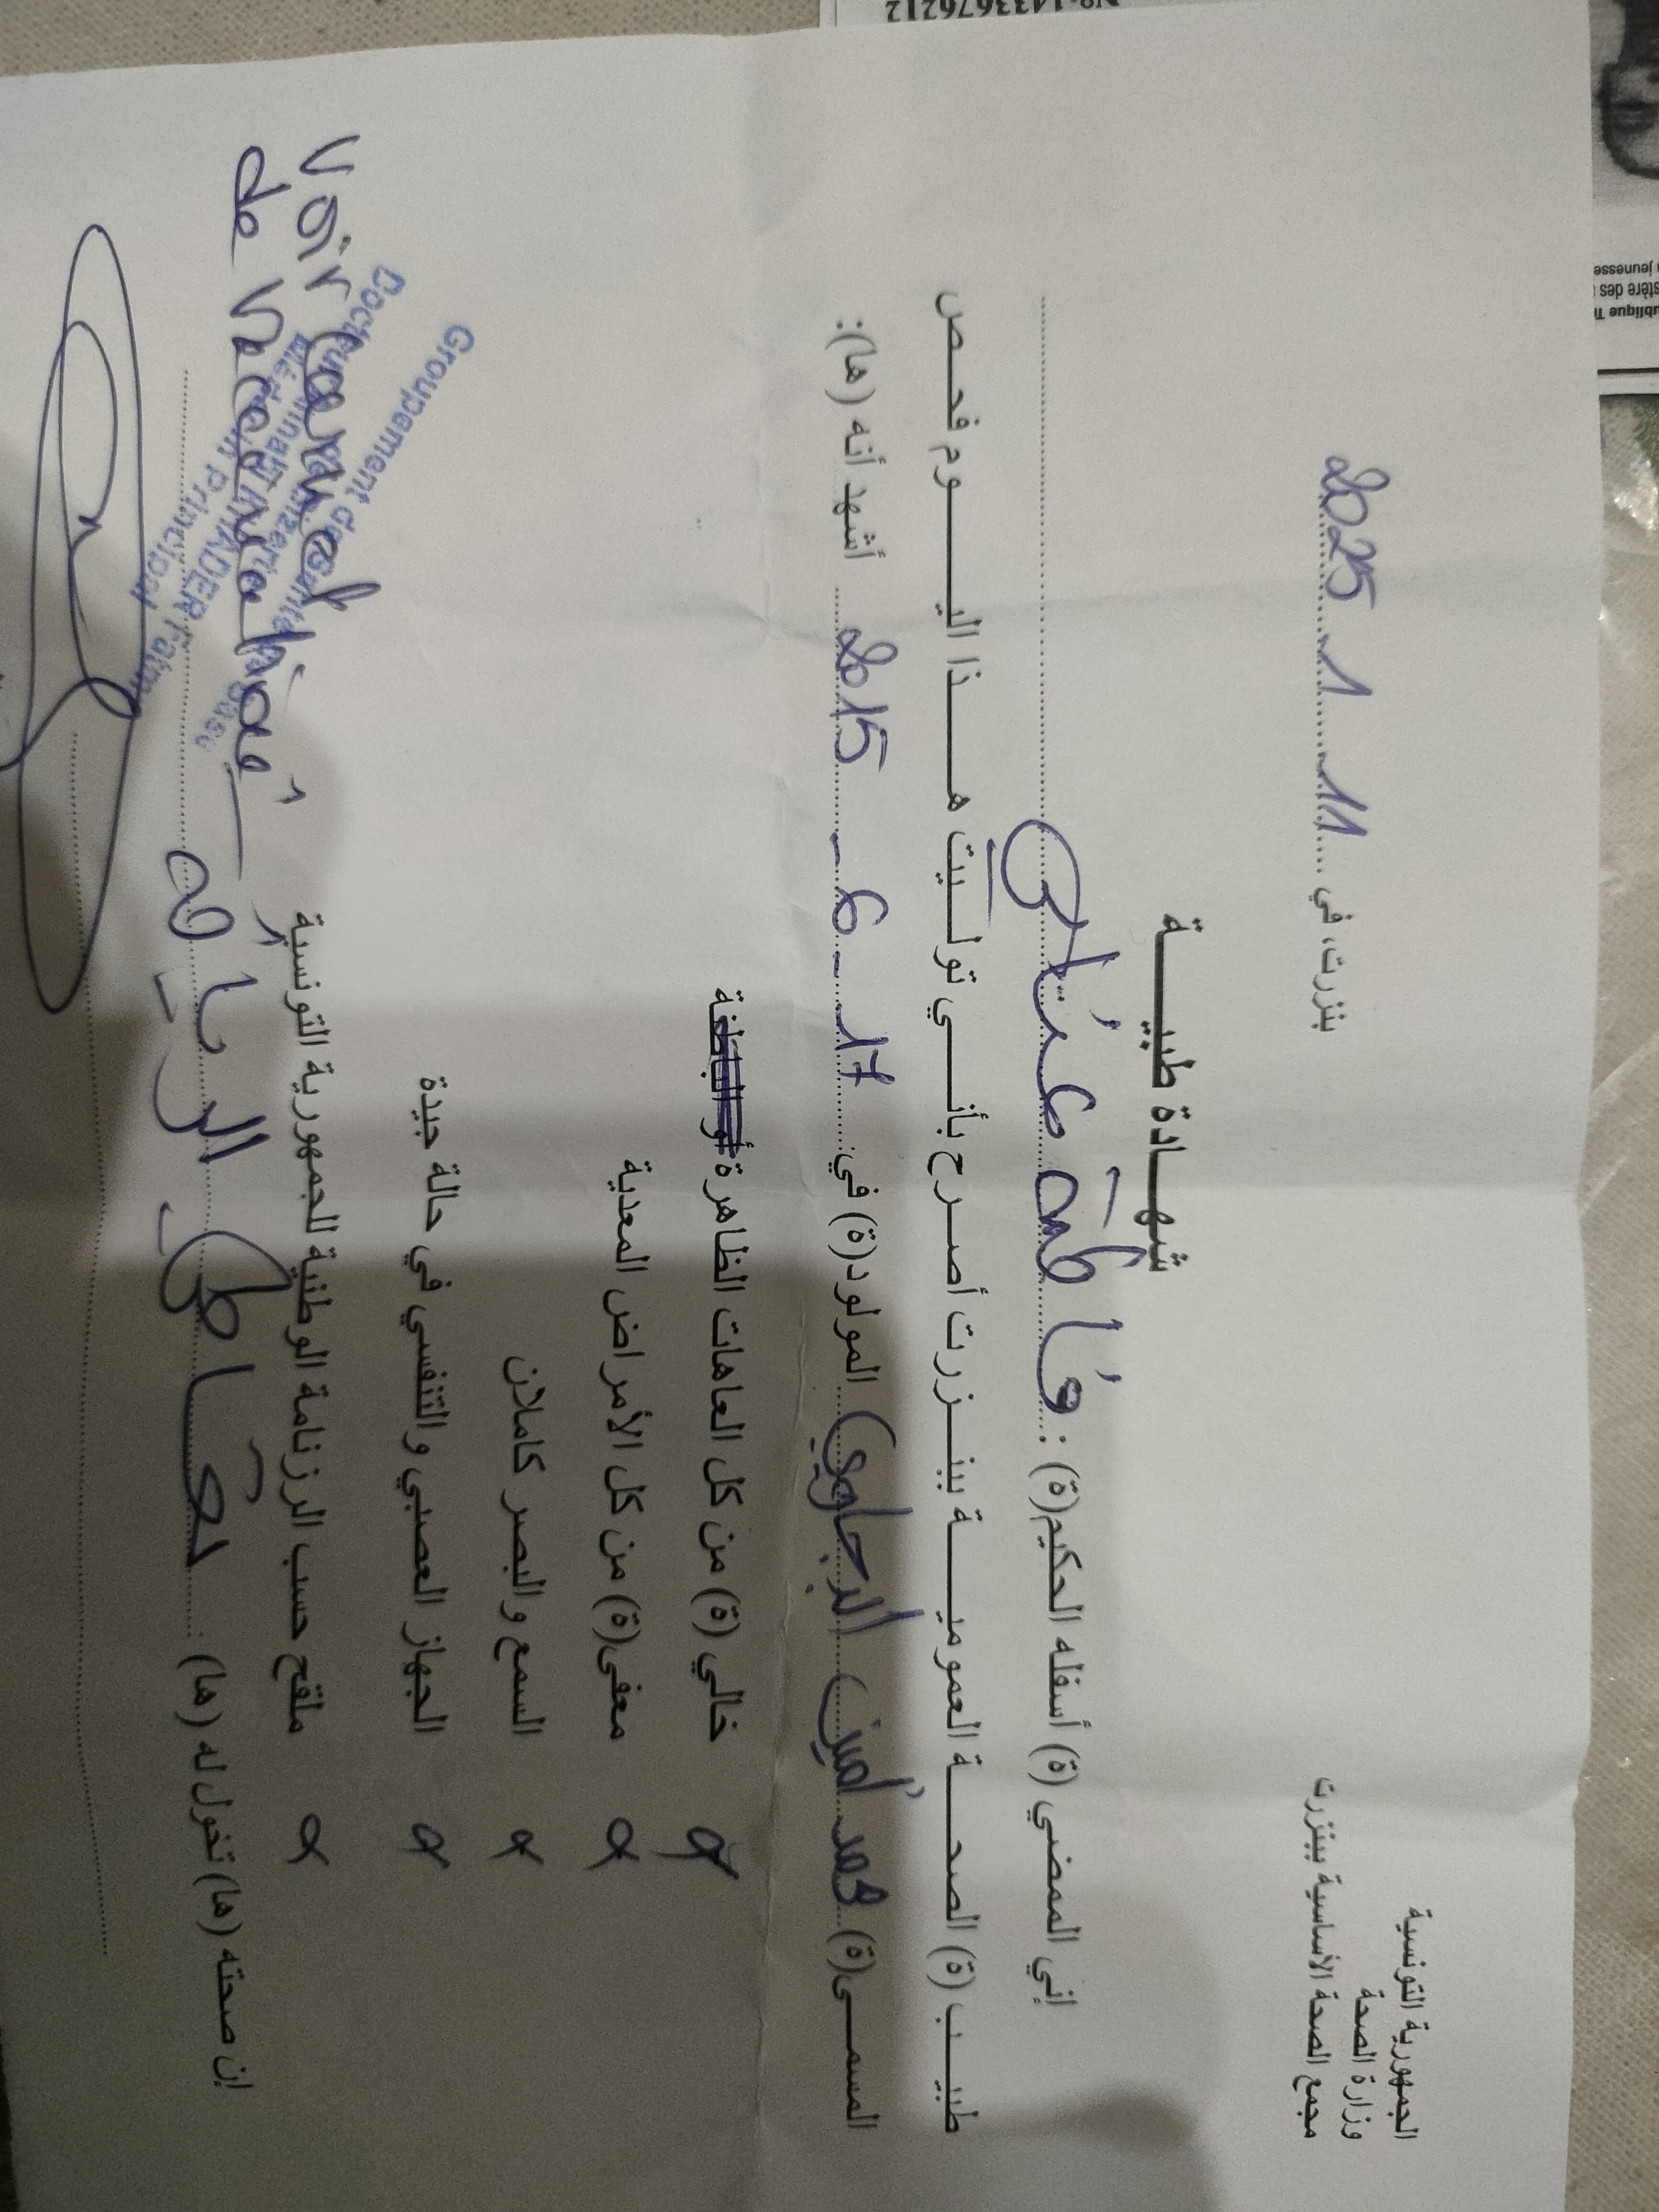 الجمهورية التونسية
وزارة الصحة
مجمع الصحة الأساسية ببنزرت
بنزرت، في 11 1 2025
شهادة طبية
إني الممضي (ة) أسفله الحكيم(ة) : فاطمة
طبيب (ة) الصحة العمومية ببنزرت أصرح بأني توليت هذا اليوم فحص
المسمى(ة) محمد أمين الدجلوي المولود(ة) في: 17 - 6 - 2015 أشهد أنه (ها):
خالي (ة) من كل العاهات الظاهرة أو الباطنة
معفى(ة) من كل الأمراض المعدية
السمع والبصر كاملان
الجهاز العصبي والتنفسي في حالة جيدة
ملقح حسب الرزنامة الوطنية للجمهورية التونسية
إن صحته (ها) تخول له (ها) : تعاطي الرياضة
Voir Carnet
de Vaccination
Groupement de Santé de Base
de Bizerte
Docteur KHADER Fatma
Médecin Principal
N°:1433676212